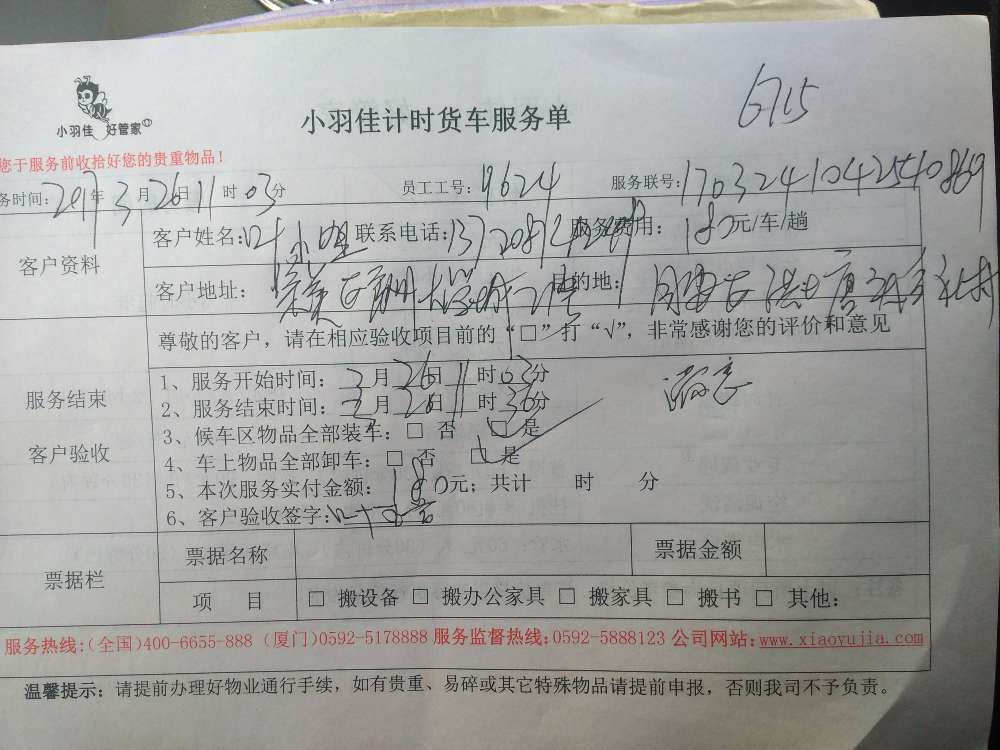 小羽佳 好管家
小羽佳计时货车服务单
6715
您于服务前收拾好您的贵重物品！
务时间：2017年3月26日11时03分 员工工号：9624 服务联号：1703241042540869
客户资料
客户姓名：叶小姐 联系电话： 服务费用：180元/车/趟
客户地址： 目的地：
尊敬的客户，请在相应验收项目前的“□”打“√”，非常感谢您的评价和意见
服务结束
客户验收
1、服务开始时间：3月26日11时03分
2、服务结束时间：3月26日11时36分
满意
3、候车区物品全部装车：□ 否 □ 是
4、车上物品全部卸车：□ 否 □ 是
5、本次服务实付金额：180元；共计 时 分
6、客户验收签字：
票据栏
票据名称 票据金额
项 目 □ 搬设备 □ 搬办公家具 □ 搬家具 □ 搬书 □ 其他：
服务热线：(全国)400-6655-888 (厦门)0592-5178888 服务监督热线：0592-5888123 公司网站：www.xiaoyujia.com
温馨提示：请提前办理好物业通行手续，如有贵重、易碎或其它特殊物品请提前申报，否则我司不予负责。